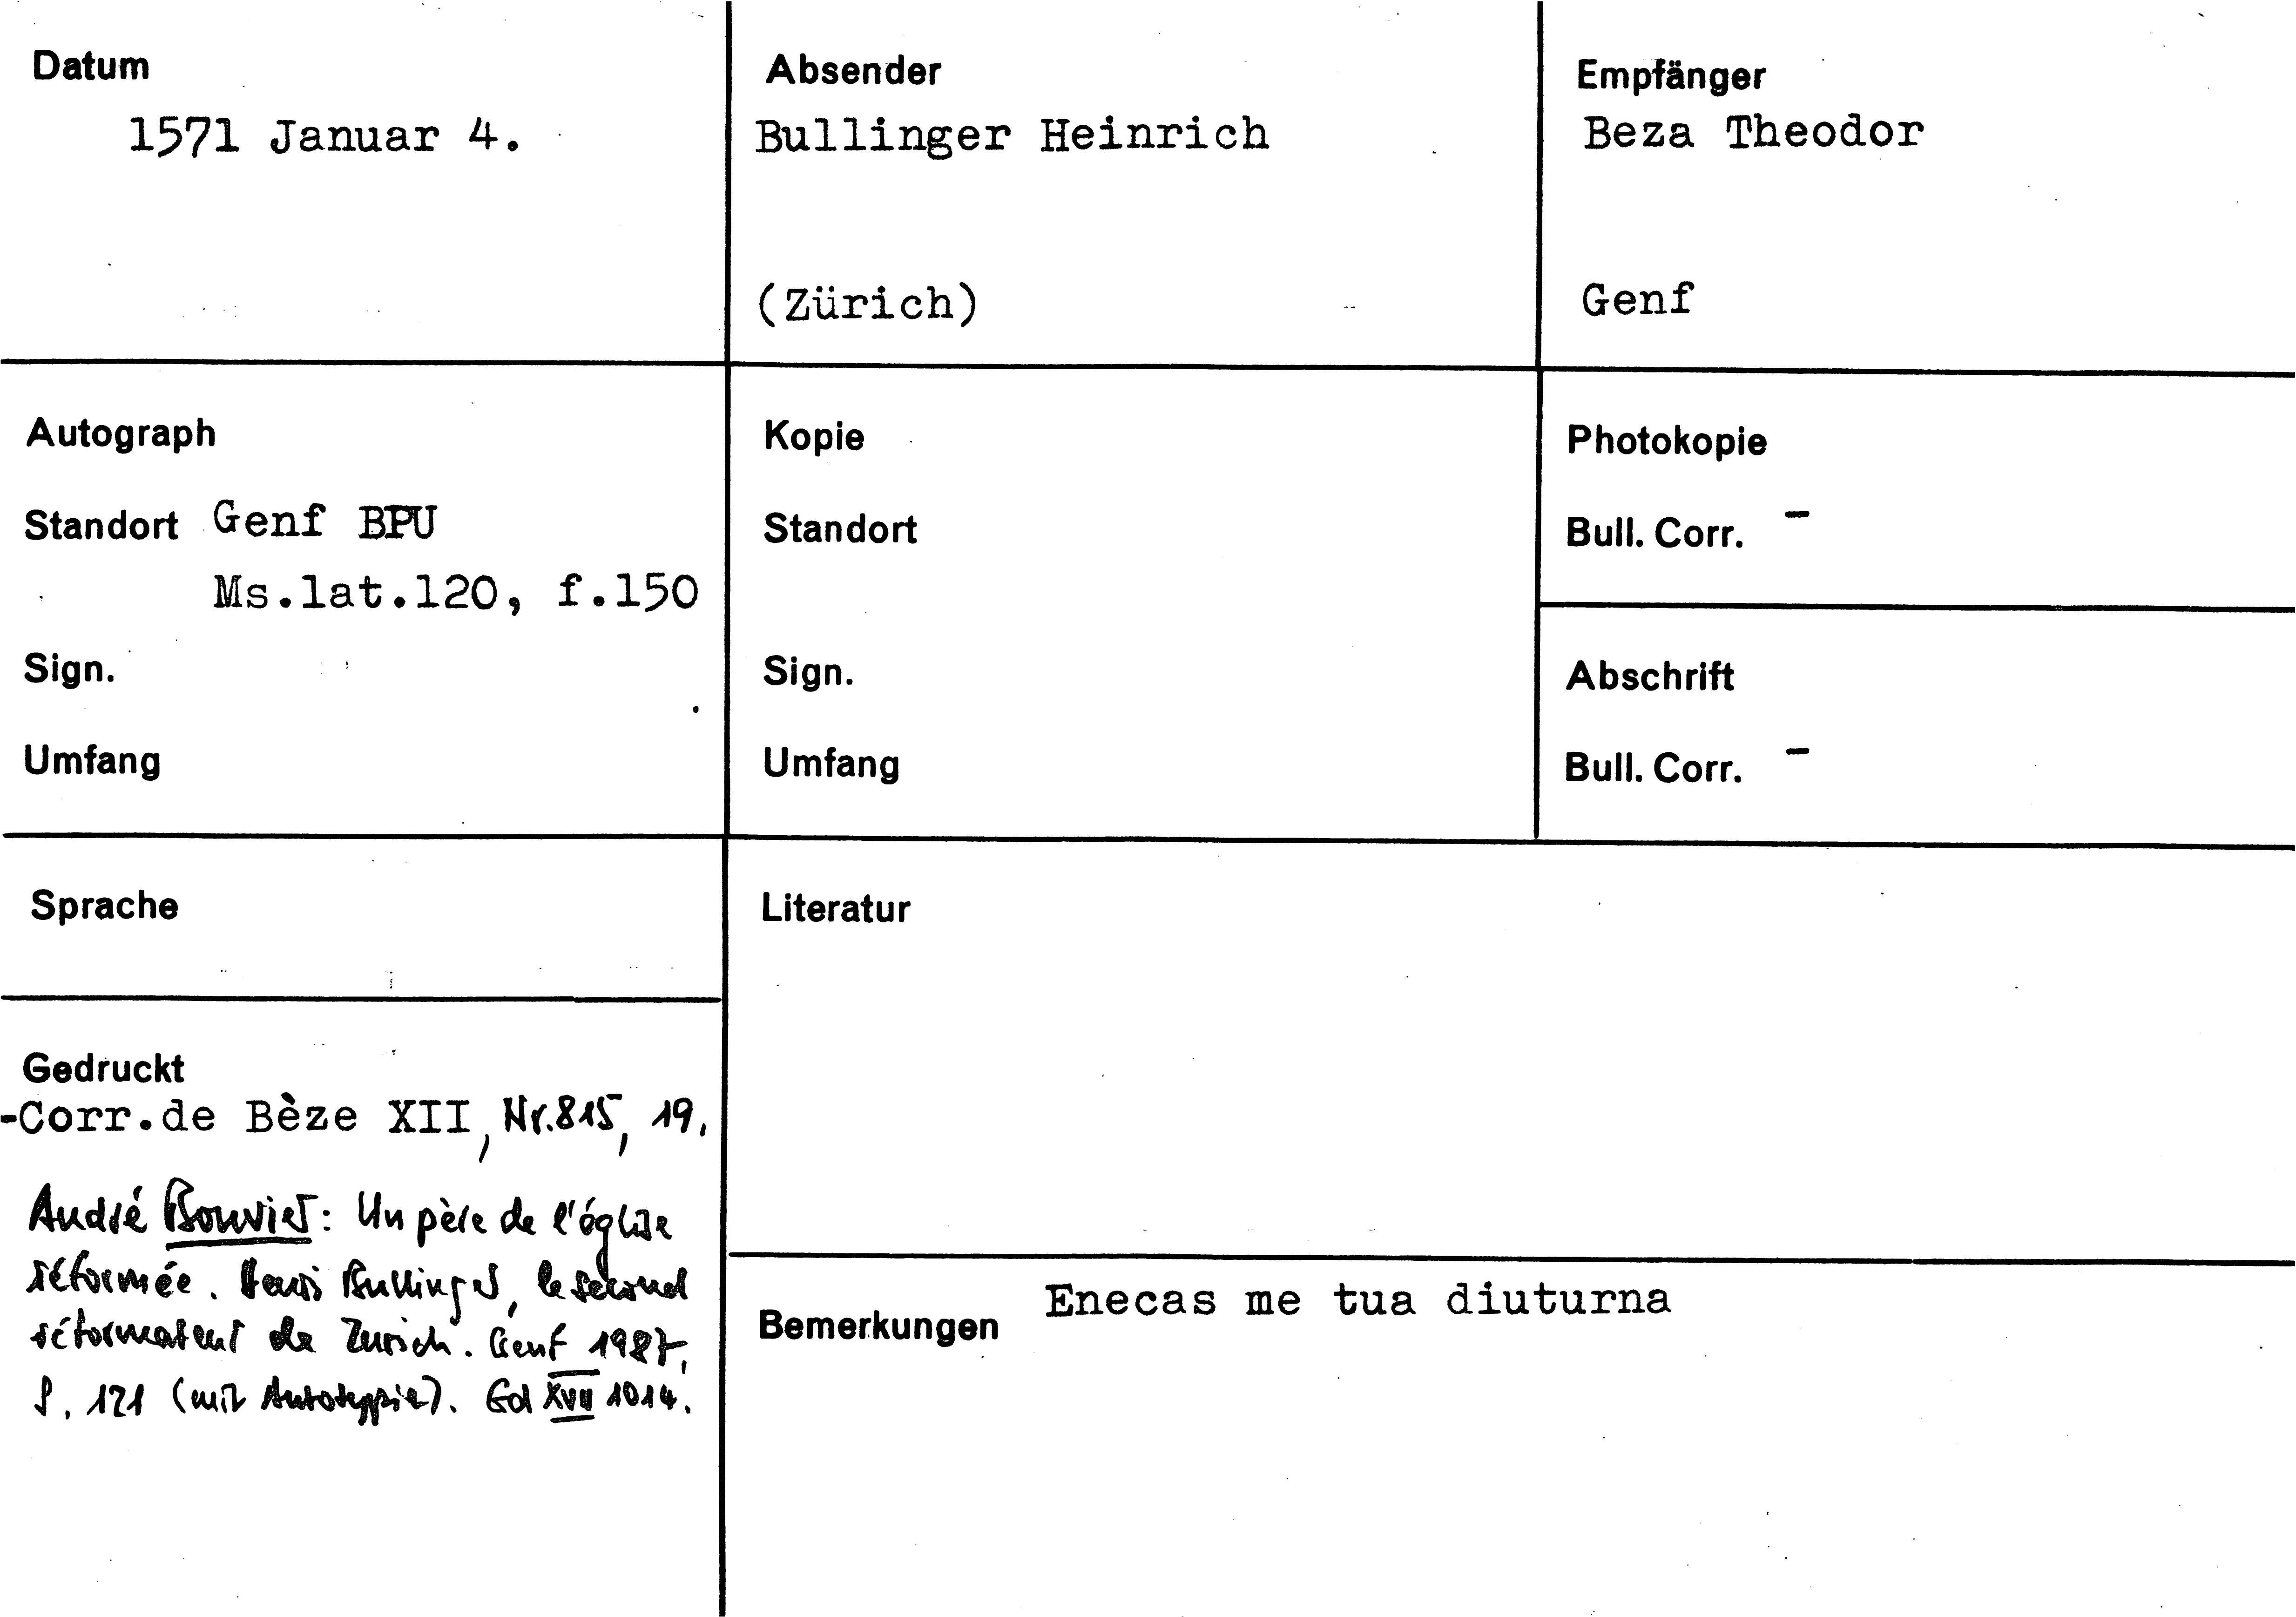 Datum
1571 Januar 4.
Absender
Bullinger Heinrich
(Zürich)
Empfänger
Beza Theodor
Genf
Autograph
Standort Genf BPU
Ms.lat.120, f.150
Sign.
Umfang
Kopie
Standort
Sign.
Umfang
Photokopie
Bull. Corr. -
Abschrift
Bull. Corr. -
Sprache
Gedruckt
-Corr.de Bèze XII, Nr.815, 19.
André Bouvier: Un père de l'église
réformée. Henri Bullinger, le second
réformateur de Zurich. Genf 1987,
S. 121 (mit Autotypie). Gd XVII 1014.
Literatur
Bemerkungen Enecas me tua diuturna